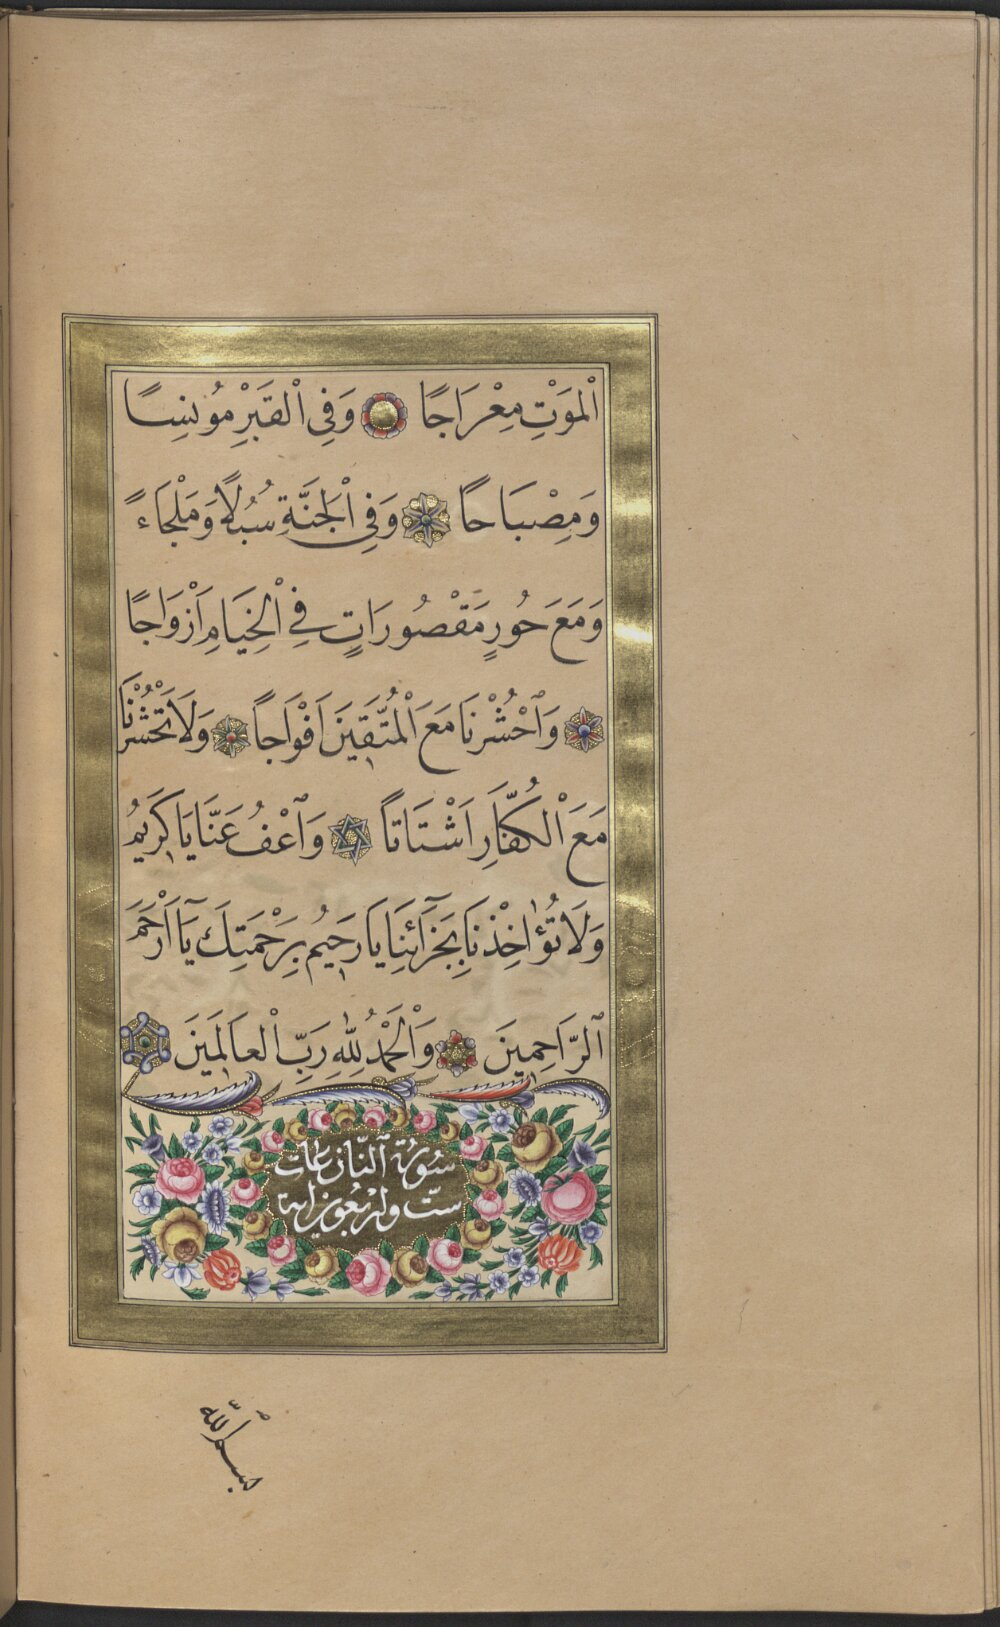 اَلْمَوْتِ مِعْرَاجًا وَفِى الْقَبْرِ مُونِسًا
وَمِصْبَاحًا وَفِى الْجَنَّةِ سُبُلًا وَمَلْجَاءً
وَمَعَ حُورٍ مَقْصُورَاتٍ فِى الْخِيَامِ اَزْوَاجًا
وَاحْشُرْنَا مَعَ الْمُتَّقِينَ اَفْوَاجًا وَلَا تَحْشُرْنَا
مَعَ الْكُفَّارِ اَشْتَاتًا وَاعْفُ عَنَّا يَا كَرِيمُ
وَلَا تُؤَاخِذْنَا بِجَرَآئِنَا يَا رَحِيمُ بِرَحْمَتِكَ يَآ اَرْحَمَ
الرَّاحِمِينَ وَالْحَمْدُ لِلّٰهِ رَبِّ الْعَالَمِينَ
سُورَةُ النَّازِعَات
ستّ واربعون اية
بسم الله